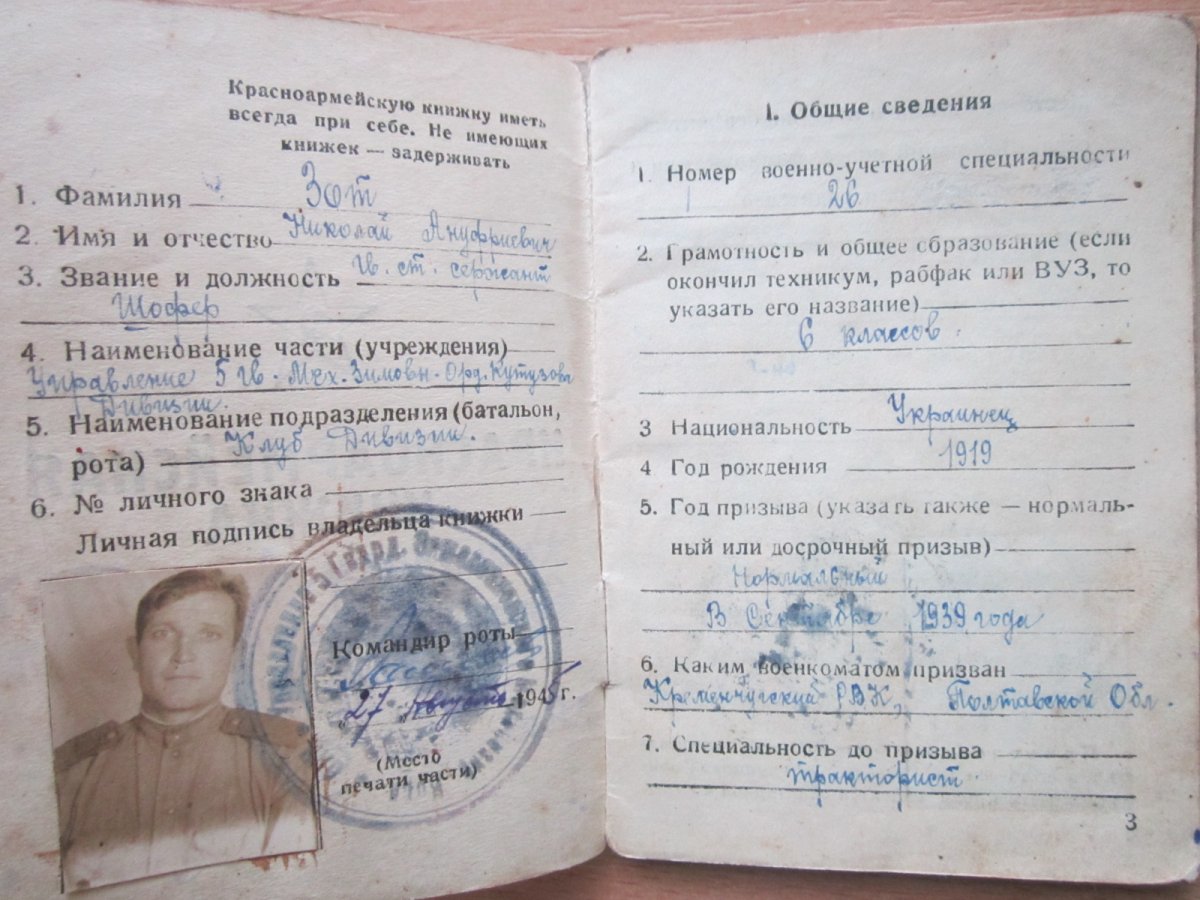 Красноармейскую книжку иметь
всегда при себе. Не имеющих
книжек — задерживать
1. Фамилия Зот
2. Имя и отчество Николай Ануфриевич
3. Звание и должность Гв. ст. сержант
Шофер
4. Наименование части (учреждения)
Управление 5 Гв. Мех. Зимовн. Орд. Кутузова
Дивизии.
5. Наименование подразделения (батальон,
рота) Клуб Дивизии.
6. № личного знака
Личная подпись владельца книжки
Командир роты
27 Августа 1945 г.
(Место
печати части)
5 Гвард.
I. Общие сведения
1. Номер военно-учетной специальности
26
2. Грамотность и общее образование (если
окончил техникум, рабфак или ВУЗ, то
указать его название)
6 классов.
3 Национальность Украинец
4 Год рождения 1919
5. Год призыва (указать также — нормаль-
ный или досрочный призыв)
Нормальный
В Сентябре 1939 года
6. Каким военкоматом призван
Кременчугский РВК, Полтавской Обл.
7. Специальность до призыва
тракторист.
3